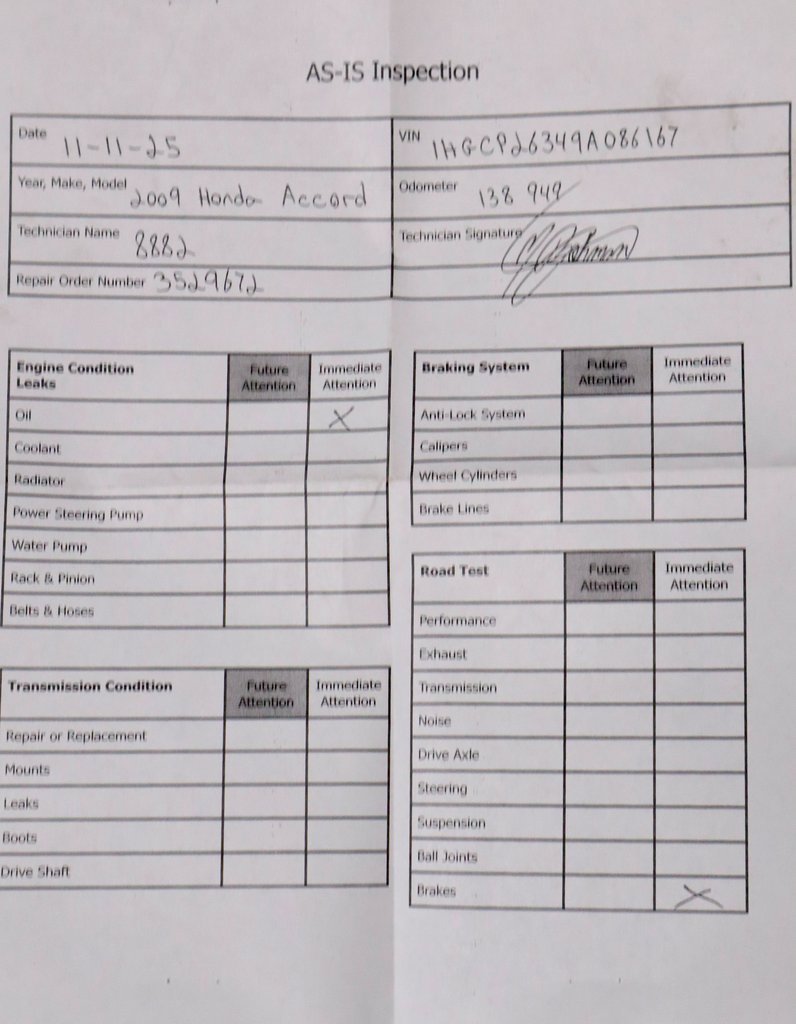 AS-IS Inspection
Date 11-11-25
VIN 1HGCP26349A086167
Year, Make, Model 2009 Honda Accord
Odometer 138 949
Technician Name 8882
Technician Signature
Repair Order Number 3529672
Engine Condition Leaks Future Attention Immediate Attention
Oil X
Coolant
Radiator
Power Steering Pump
Water Pump
Rack & Pinion
Belts & Hoses
Transmission Condition Future Attention Immediate Attention
Repair or Replacement
Mounts
Leaks
Boots
Drive Shaft
Braking System Future Attention Immediate Attention
Anti-Lock System
Calipers
Wheel Cylinders
Brake Lines
Road Test Future Attention Immediate Attention
Performance
Exhaust
Transmission
Noise
Drive Axle
Steering
Suspension
Ball Joints
Brakes X